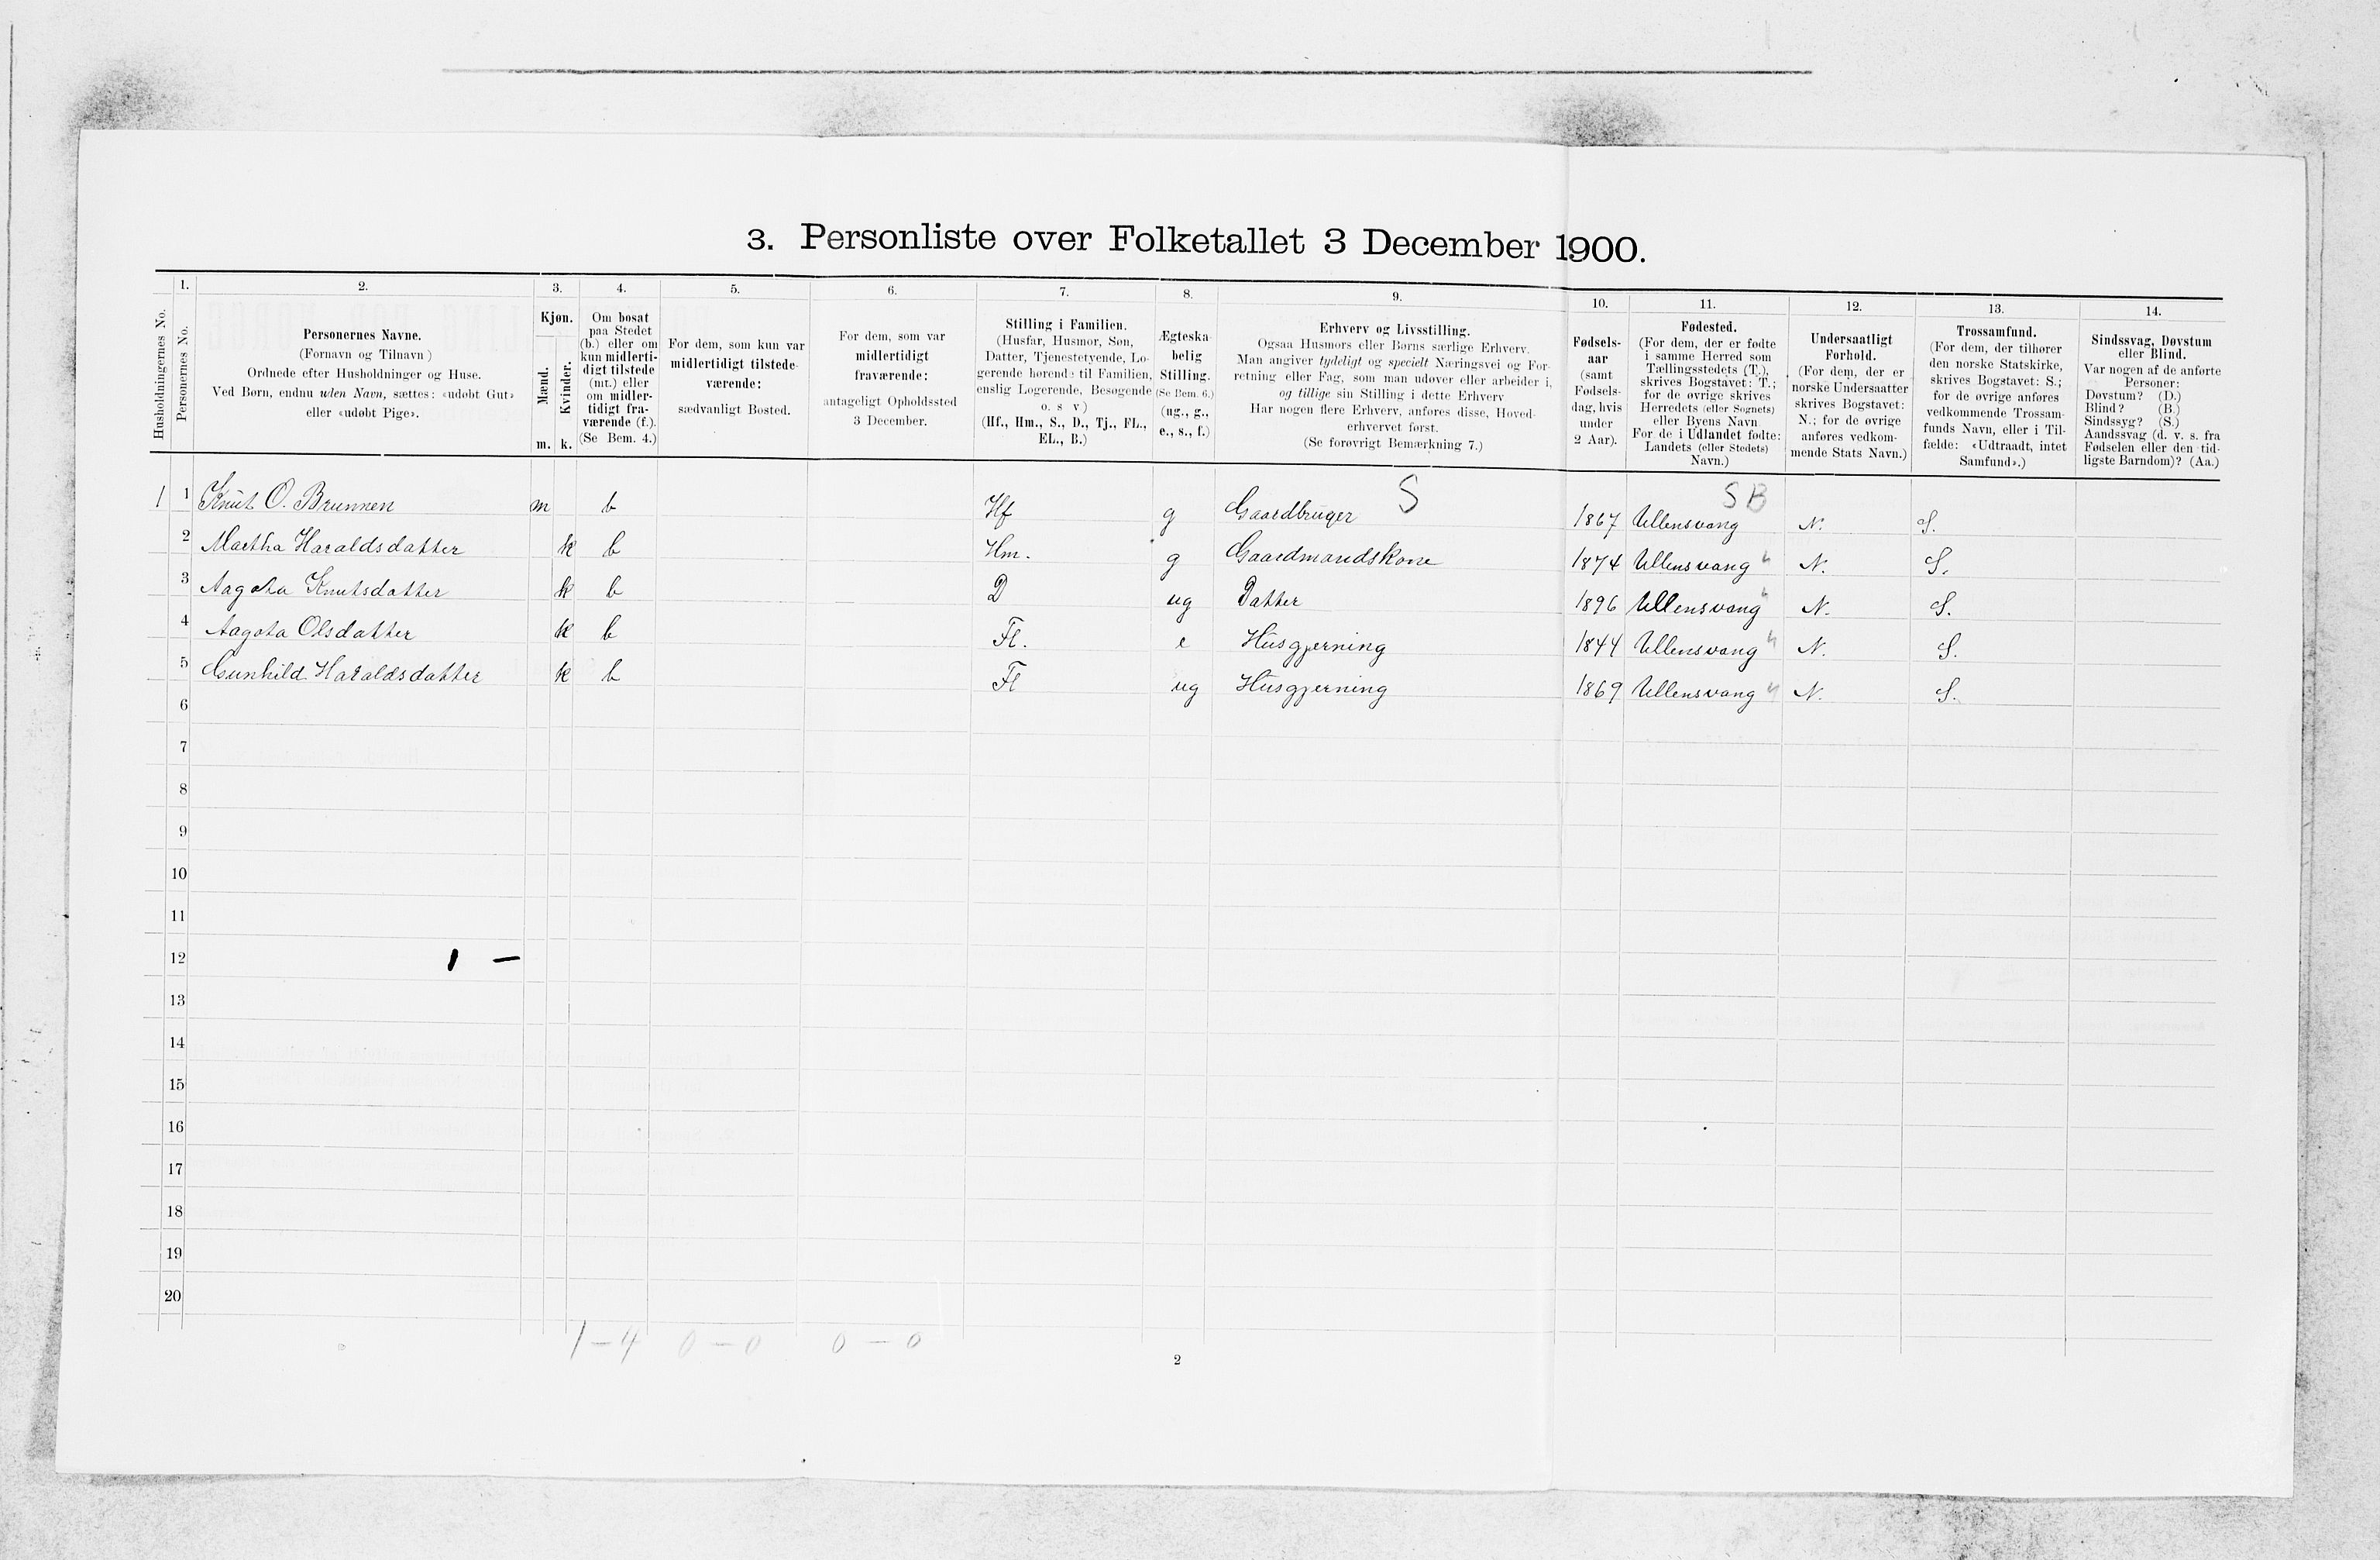 3. Personliste over Folketallet 3 December 1900.
1. 2. 3. 4. 5. 6. 7. 8. 9. 10. 11. 12. 13. 14.
Husholdningernes No.
Personernes No.
Personernes Navne.
(Fornavn og Tilnavn)
Ordnede efter Husholdninger og Huse.
Ved Børn, endnu uden Navn, sættes: «udøbt Gut»
eller «udøbt Pige».
Kjøn.
Mænd.
Kvinder.
m. k.
Om bosat
paa Stedet
(b.) eller om
kun midlerti-
digt tilstede
(mt.) eller
om midler-
tidigt fra-
værende (f.).
(Se Bem. 4.)
For dem, som kun var
midlertidigt tilstede-
værende:
sædvanligt Bosted.
For dem, som var
midlertidigt
fraværende:
antageligt Opholdssted
3 December.
Stilling i Familien.
(Husfar, Husmor, Søn,
Datter, Tjenestetyende, Lo-
gerende hørende til Familien,
enslig Logerende, Besøgende
o. s v)
(Hf., Hm., S., D., Tj., FL.,
EL., B.)
Ægteska-
belig
Stilling.
(Se Bem. 6.)
(ug., g.,
e., s., f.)
Erhverv og Livsstilling.
Ogsaa Husmors eller Børns særlige Erhverv.
Man angiver tydeligt og specielt Næringsvei og For-
retning eller Fag, som man udøver eller arbeider i,
og tillige sin Stilling i dette Erhverv
Har nogen flere Erhverv, anføres disse, Hoved-
erhvervet først.
(Se forøvrigt Bemærkning 7.)
Fødsels-
aar
(samt
Fødsels-
dag, hvis
under
2 Aar).
Fødested.
(For dem, der er fødte
i samme Herred som
Tællingsstedets (T.),
skrives Bogstavet: T.;
for de øvrige skrives
Herredets (eller Sognets)
eller Byens Navn
For de i Udlandet fødte:
Landets (eller Stedets)
Navn.)
Undersaatligt
Forhold.
(For dem, der er
norske Undersaatter
skrives Bogstavet:
N.; for de øvrige
anføres vedkom-
mende Stats Navn.)
Trossamfund.
(For dem, der tilhører
den norske Statskirke,
skrives Bogstavet: S.;
for de øvrige anføres
vedkommende Trossam-
funds Navn, eller i Til-
fælde: «Udtraadt, intet
Samfund».)
Sindssvag, Døvstum
eller Blind.
Var nogen af de anførte
Personer:
Døvstum? (D.)
Blind? (B.)
Sindssyg? (S.)
Aandssvag (d. v. s. fra
Fødselen eller den tid-
ligste Barndom)? (Aa.)
S SB
1 1 Knut O. Brunnen m b Hf g Gaardbruger 1867 Ullensvang N. S.
2 Martha Haraldsdatter k b Hm. g Gaardmandskone 1874 Ullensvang N. S.
3 Aagota Knutsdatter k b D ug Datter 1896 Ullensvang N. S.
4 Aagota Olsdatter k b Fl. e Husgjerning 1844 Ullensvang N. S.
5 Gunhild Haraldsdatter k b Fl ug Husgjerning 1869 Ullensvang N. S.
6
7
8
9
10
11
12 1 –
13
14
15
16
17
18
19
20
1 – 4 0 – 0 0 – 0
2